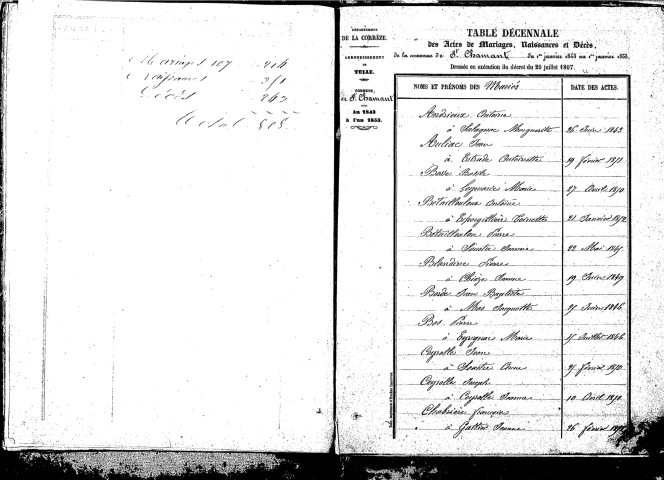 Mariages 107
Total
DÉPARTEMENT
DE LA CORRÈZE.
ARRONDISSEMENT
DE
TULLE.
COMMUNE
de St Chamant
An 1843
à l'an 1853.
TABLE DÉCENNALE
des Actes de Mariages, Naissances et Décès,
de la commune de St Chamant du 1er janvier 1843 au 1er janvier 1853.
Dressée en exécution du décret du 20 juillet 1807.
NOMS ET PRÉNOMS DES Mariés DATE DES ACTES.
Andrieux Antoine
à Salagnac Marguerite 26 Juin 1843
Auliac Jean
à Estrade Antoinette 19 février 1851
Basile
à Leymarie Marie 27 Avril 1850
Bétaillouloux Antoine
à Toinette 21 Janvier 1852
Bétaillouloux Pierre
à Jeanne 22 Mai 1845
Blandine Pierre
à Chièze Jeanne 19 Juin 1849
Borde Jean Baptiste
à Mas Jacquette Juin 1846
Bos Pierre
à Eyrignac Marie 15 Juillet 1846
Ceyrolle Jean
à Anne février 1850
Ceyrolle Joseph
à Ceyrolle Jeanne 10 Avril 1850
Chabrière François
à Jeanne 26 février